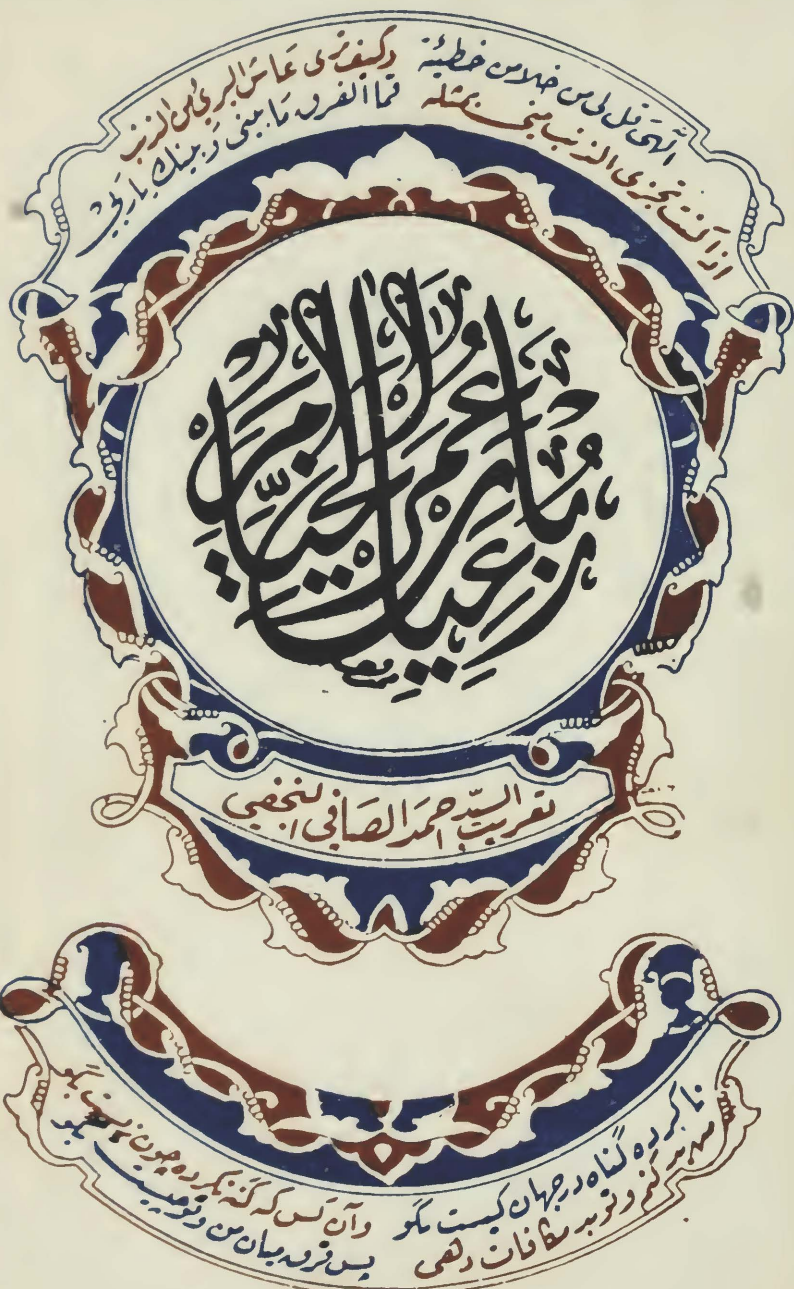 الٰهي قل لي من خلا من خطيئة وكيف ترى عاش البريء من الذنب
اذا كنت تجزي الذنب مني بمثله فما الفرق ما بيني وبينك يا ربي
رُبَاعِيَات عُمَر الخَيَّام
تعريب السيّد احمد الصافي النجفي
ناكرده گناه در جهان كيست بگو وآن كس كه گنه نكرده چون زيست بگو
من بد كنم و تو بد مكافات دهى پس فرق ميان من و تو چيست بگو